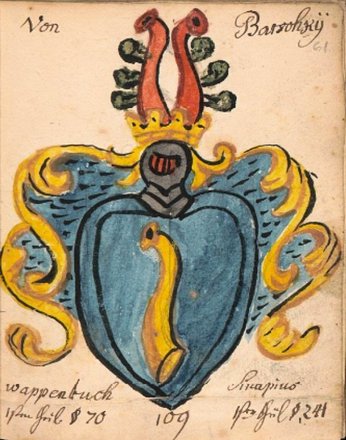 Von Barsohsÿ
61
wappenbuch Sinapius
1ster Theil § 70 109 1ster Theil §. 241